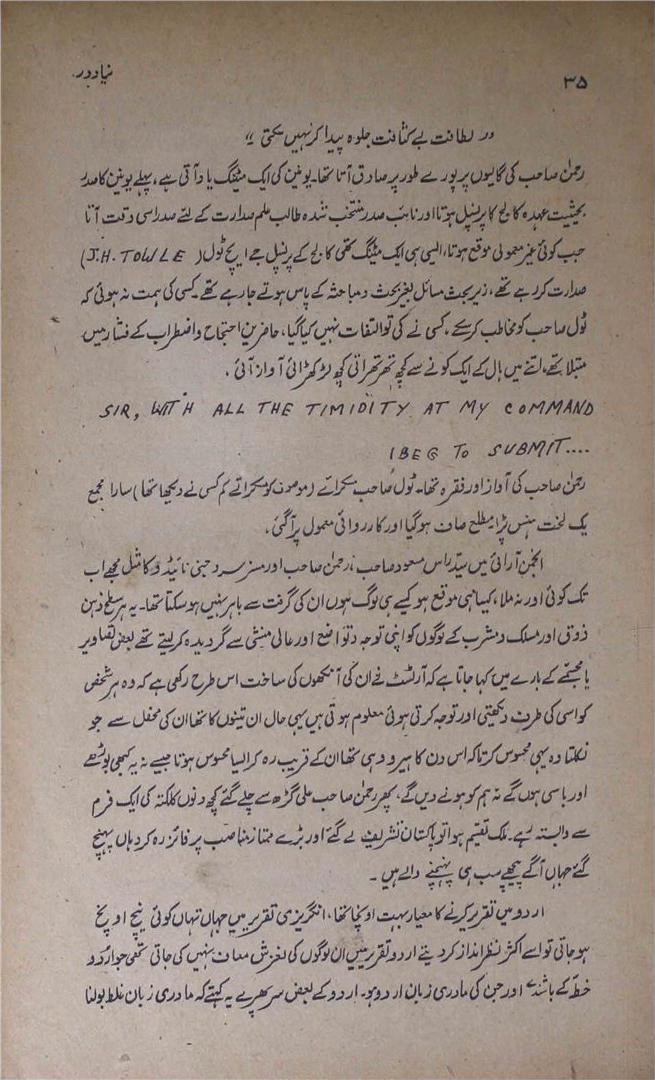 ۳۵ نیا دور
در لطافت بے کثافت جلوہ پیدا کر نہیں سکتی ؛؛
رحمٰن صاحب کی گالیوں پر پورے طور پر صادق آتا تھا۔ یونین کی ایک میٹنگ یاد آتی ہے، پہلے یونین کا صدر
بحیثیت عہدہ کالج کا پرنسپل ہوتا اور نائب صدر منتخب شدہ طالب علم صدارت کے لئے صدر اسی وقت آتا
جب کوئی غیر معمولی موقع ہوتا، ایسی ہی ایک میٹنگ تھی کالج کے پرنسپل جے ایچ ٹول (J.H. TOWLE)
صدارت کر رہے تھے، زیر بحث مسائل بغیر بحث و مباحثہ کے پاس ہوتے جا رہے تھے۔ کسی کی ہمت نہ ہوئی کہ
ٹول صاحب کو مخاطب کر سکے، کسی نے کی تو التفات نہیں کیا گیا، حاضرین احتجاج و اضطراب کے فشار میں
مبتلا تھے، اتنے میں ہال کے ایک کونے سے کچھ تھرتھراتی کچھ لڑکھڑائی آواز آئی ،
SIR, WITH ALL THE TIMIDITY AT MY COMMAND
I BEG TO SUBMIT....
رحمٰن صاحب کی آواز اور فقرہ تھا۔ ٹول صاحب مسکرائے (موصوف کو مسکراتے کم کسی نے دیکھا تھا) سارا مجمع
یک لخت ہنس پڑا مطلع صاف ہو گیا اور کارروائی معمول پر آ گئی ،
انجمن آرائی میں سید راس مسعود صاحب، رحمٰن صاحب اور مسز سروجنی نائیڈو کا مثل مجھے اب
تک کوئی اور نہ ملا، کیسا ہی موقع ہو کیسے ہی لوگ ہوں ان کی گرفت سے باہر نہیں ہو سکتا تھا۔ یہ ہر سطح ذہن
ذوق اور مسلک و مشرب کے لوگوں کو اپنی توجہ و تواضع اور عالی منشی سے گرویدہ کر لیتے تھے بعض تصاویر
یا مجسمے کے بارے میں کہا جاتا ہے کہ آرٹسٹ نے ان کی آنکھوں کی ساخت اس طرح رکھی ہے کہ وہ ہر شخص
کو اسی کی طرف دیکھتی اور توجہ کرتی ہوئی معلوم ہوتی ہیں یہی حال ان تینوں کا تھا ان کی محفل سے جو
نکلتا وہ یہی محسوس کرتا کہ اس دن کا ہیرو وہی تھا ان کے قریب رہ کر ایسا محسوس ہوتا جیسے نہ یہ کبھی بوڑھے
اور باسی ہوں گے نہ ہم کو ہونے دیں گے، پھر رحمٰن صاحب علی گڑھ سے چلے گئے کچھ دنوں کلکتہ کی ایک فرم
سے وابستہ رہے۔ ملک تقسیم ہوا تو پاکستان تشریف لے گئے اور بڑے ممتاز مناصب پر فائز رہ کر وہاں پہنچ
گئے جہاں آگے پیچھے سب ہی پہنچنے والے ہیں ۔
اردو میں تقریر کرنے کا معیار بہت اونچا تھا، انگریزی تقریر میں جہاں تہاں کوئی نیچ اونچ
ہو جاتی تو اسے اکثر نظر انداز کر دیتے اردو تقریر میں ان لوگوں کی لغزش معاف نہیں کی جاتی تھی جو اردو
خطّے کے باشندے اور جن کی مادری زبان اردو ہو۔ اردو کے بعض سر پھرے یہ کہتے کہ مادری زبان غلط بولنا